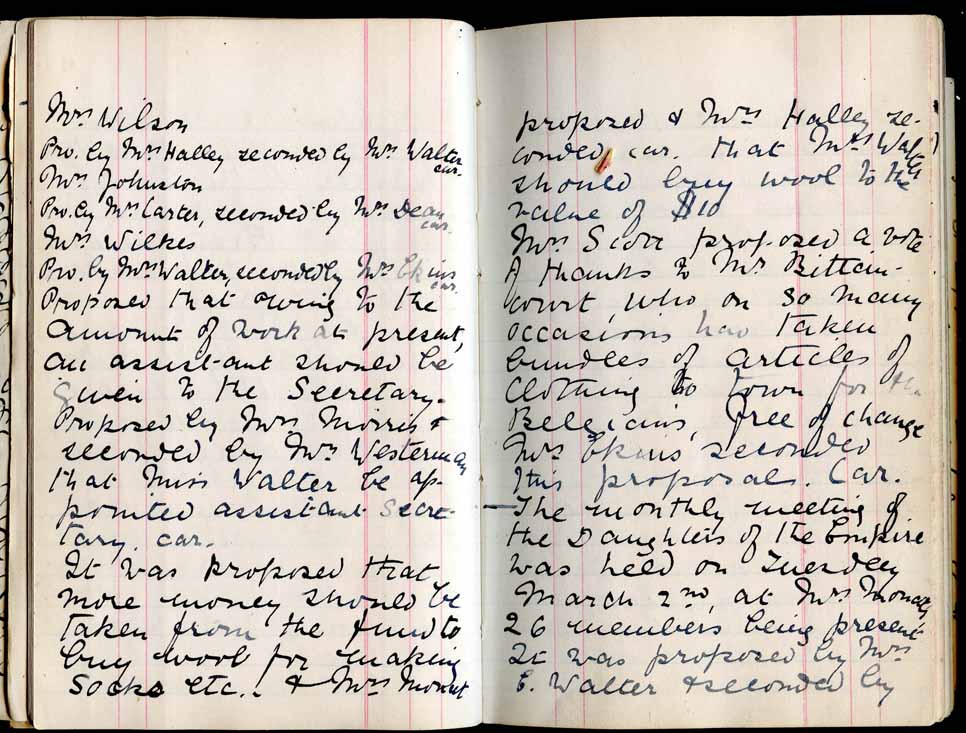 Mrs Wilson
Pro. by Mrs Halley seconded by Mrs Walter
car.
Mrs Johnston
Pro. by Mrs Carter, seconded by Mrs Dean
car.
Mrs Wilkes
Pro. by Mrs Walter, seconded by Mrs Ekins
car.
Proposed that owing to the
amount of work at present,
an assistant should be
given to the Secretary.
Proposed by Mrs Morris &
seconded by Mrs Westerman
that Miss Walter be ap-
pointed assistant Secre-
tary. car.
It was proposed that
more money should be
taken from the fund to
buy wool for making
Socks etc. & Mrs
proposed & Mrs Halley se-
conded, car. that Mrs
should buy wool to the
value of $10
Mrs Scott proposed a vote
of thanks to Mr Bittain-
court, who, on so many
occasions has taken
bundles of articles of
Clothing to town for the
Belgians, free of change
Mrs Ekins seconded
this proposal. Car.
The monthly meeting of
the Daughters of the Empire
was held on Tuesday
March 2nd, at Mrs
26 members being present
It was proposed by Mrs
E. Walter & seconded by